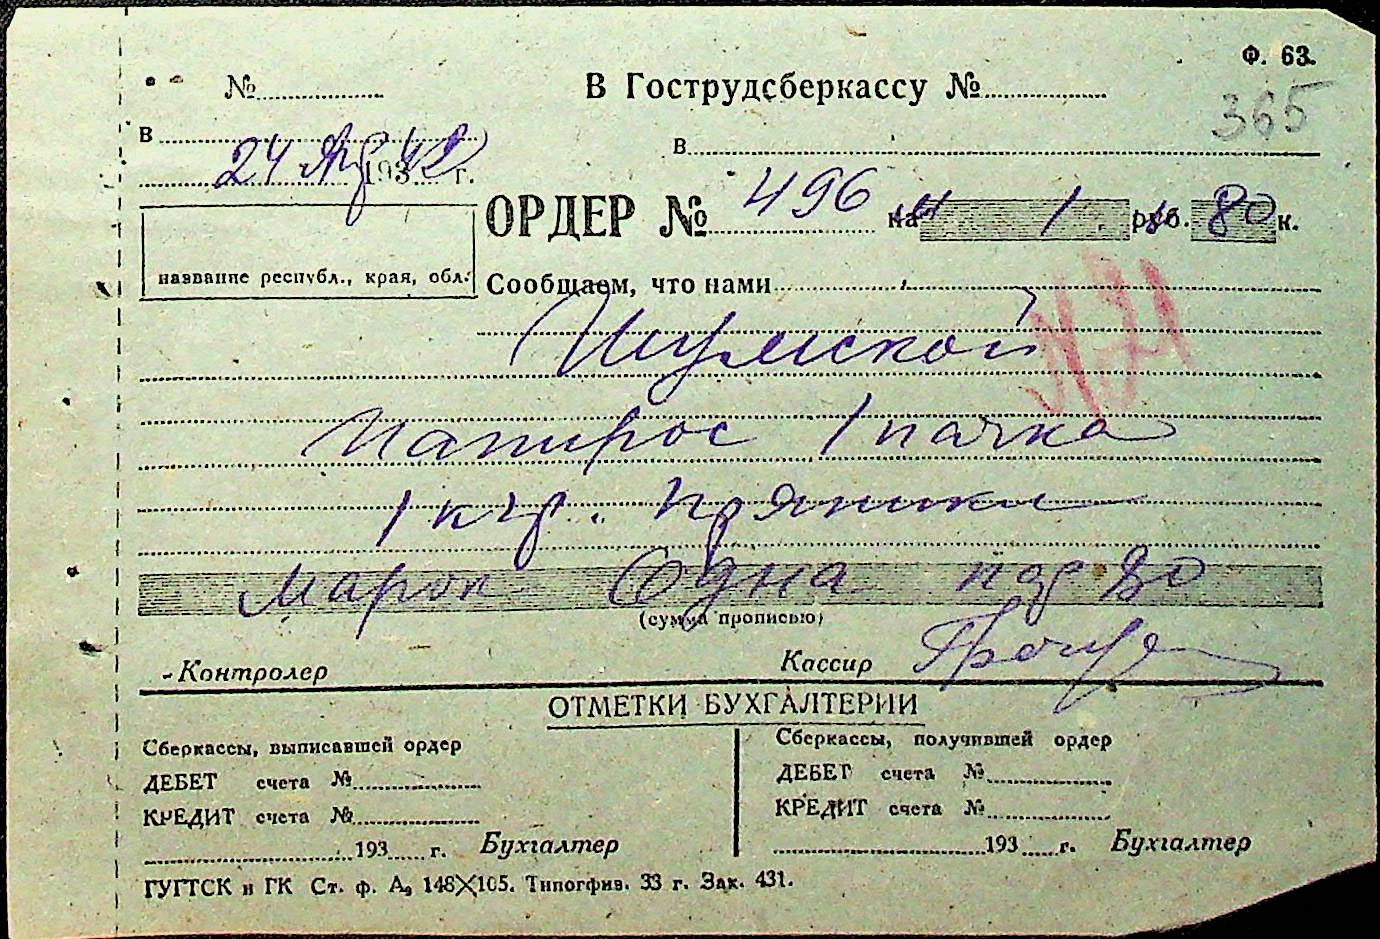 Ф. 63.
№ В Гострудсберкассу №
365
В В
24 Апр 193 42 г.
ОРДЕР № 496 на 1 руб. 80 к.
название республ., края, обл.
Сообщаем, что нами
Шумской
Папирос 1 пачка
1 кгр. Пряники
марок Одна пф 80
(сумма прописью)
Контролер Кассир
ОТМЕТКИ БУХГАЛТЕРИИ
Сберкассы, выписавшей ордер Сберкассы, получившей ордер
ДЕБЕТ счета № ДЕБЕТ счета №
КРЕДИТ счета № КРЕДИТ счета №
193 г. Бухгалтер 193 г. Бухгалтер
ГУГТСК и ГК Ст. ф. А, 148X105. Типогфив. 33 г. Зак. 431.